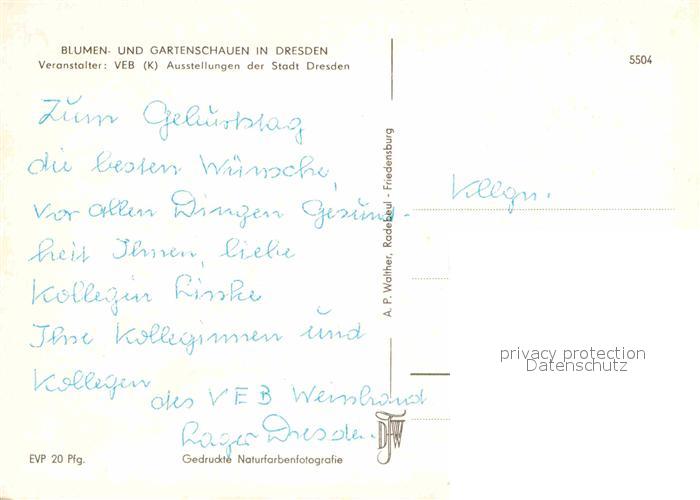 BLUMEN- UND GARTENSCHAUEN IN DRESDEN
Veranstalter: VEB (K) Ausstellungen der Stadt Dresden
5504
Zum Geburtstag
die besten Wünsche,
vor allen Dingen Gesund-
heit Ihnen, liebe
Kollegin
Ihre Kolleginnen und
Kollegen
des VEB Weinbrand
Lager Dresden.
Kllgn.
A. P. Walther, Radebeul - Friedensburg
privacy protection
Datenschutz
DFW
EVP 20 Pfg.
Gedruckte Naturfarbenfotografie